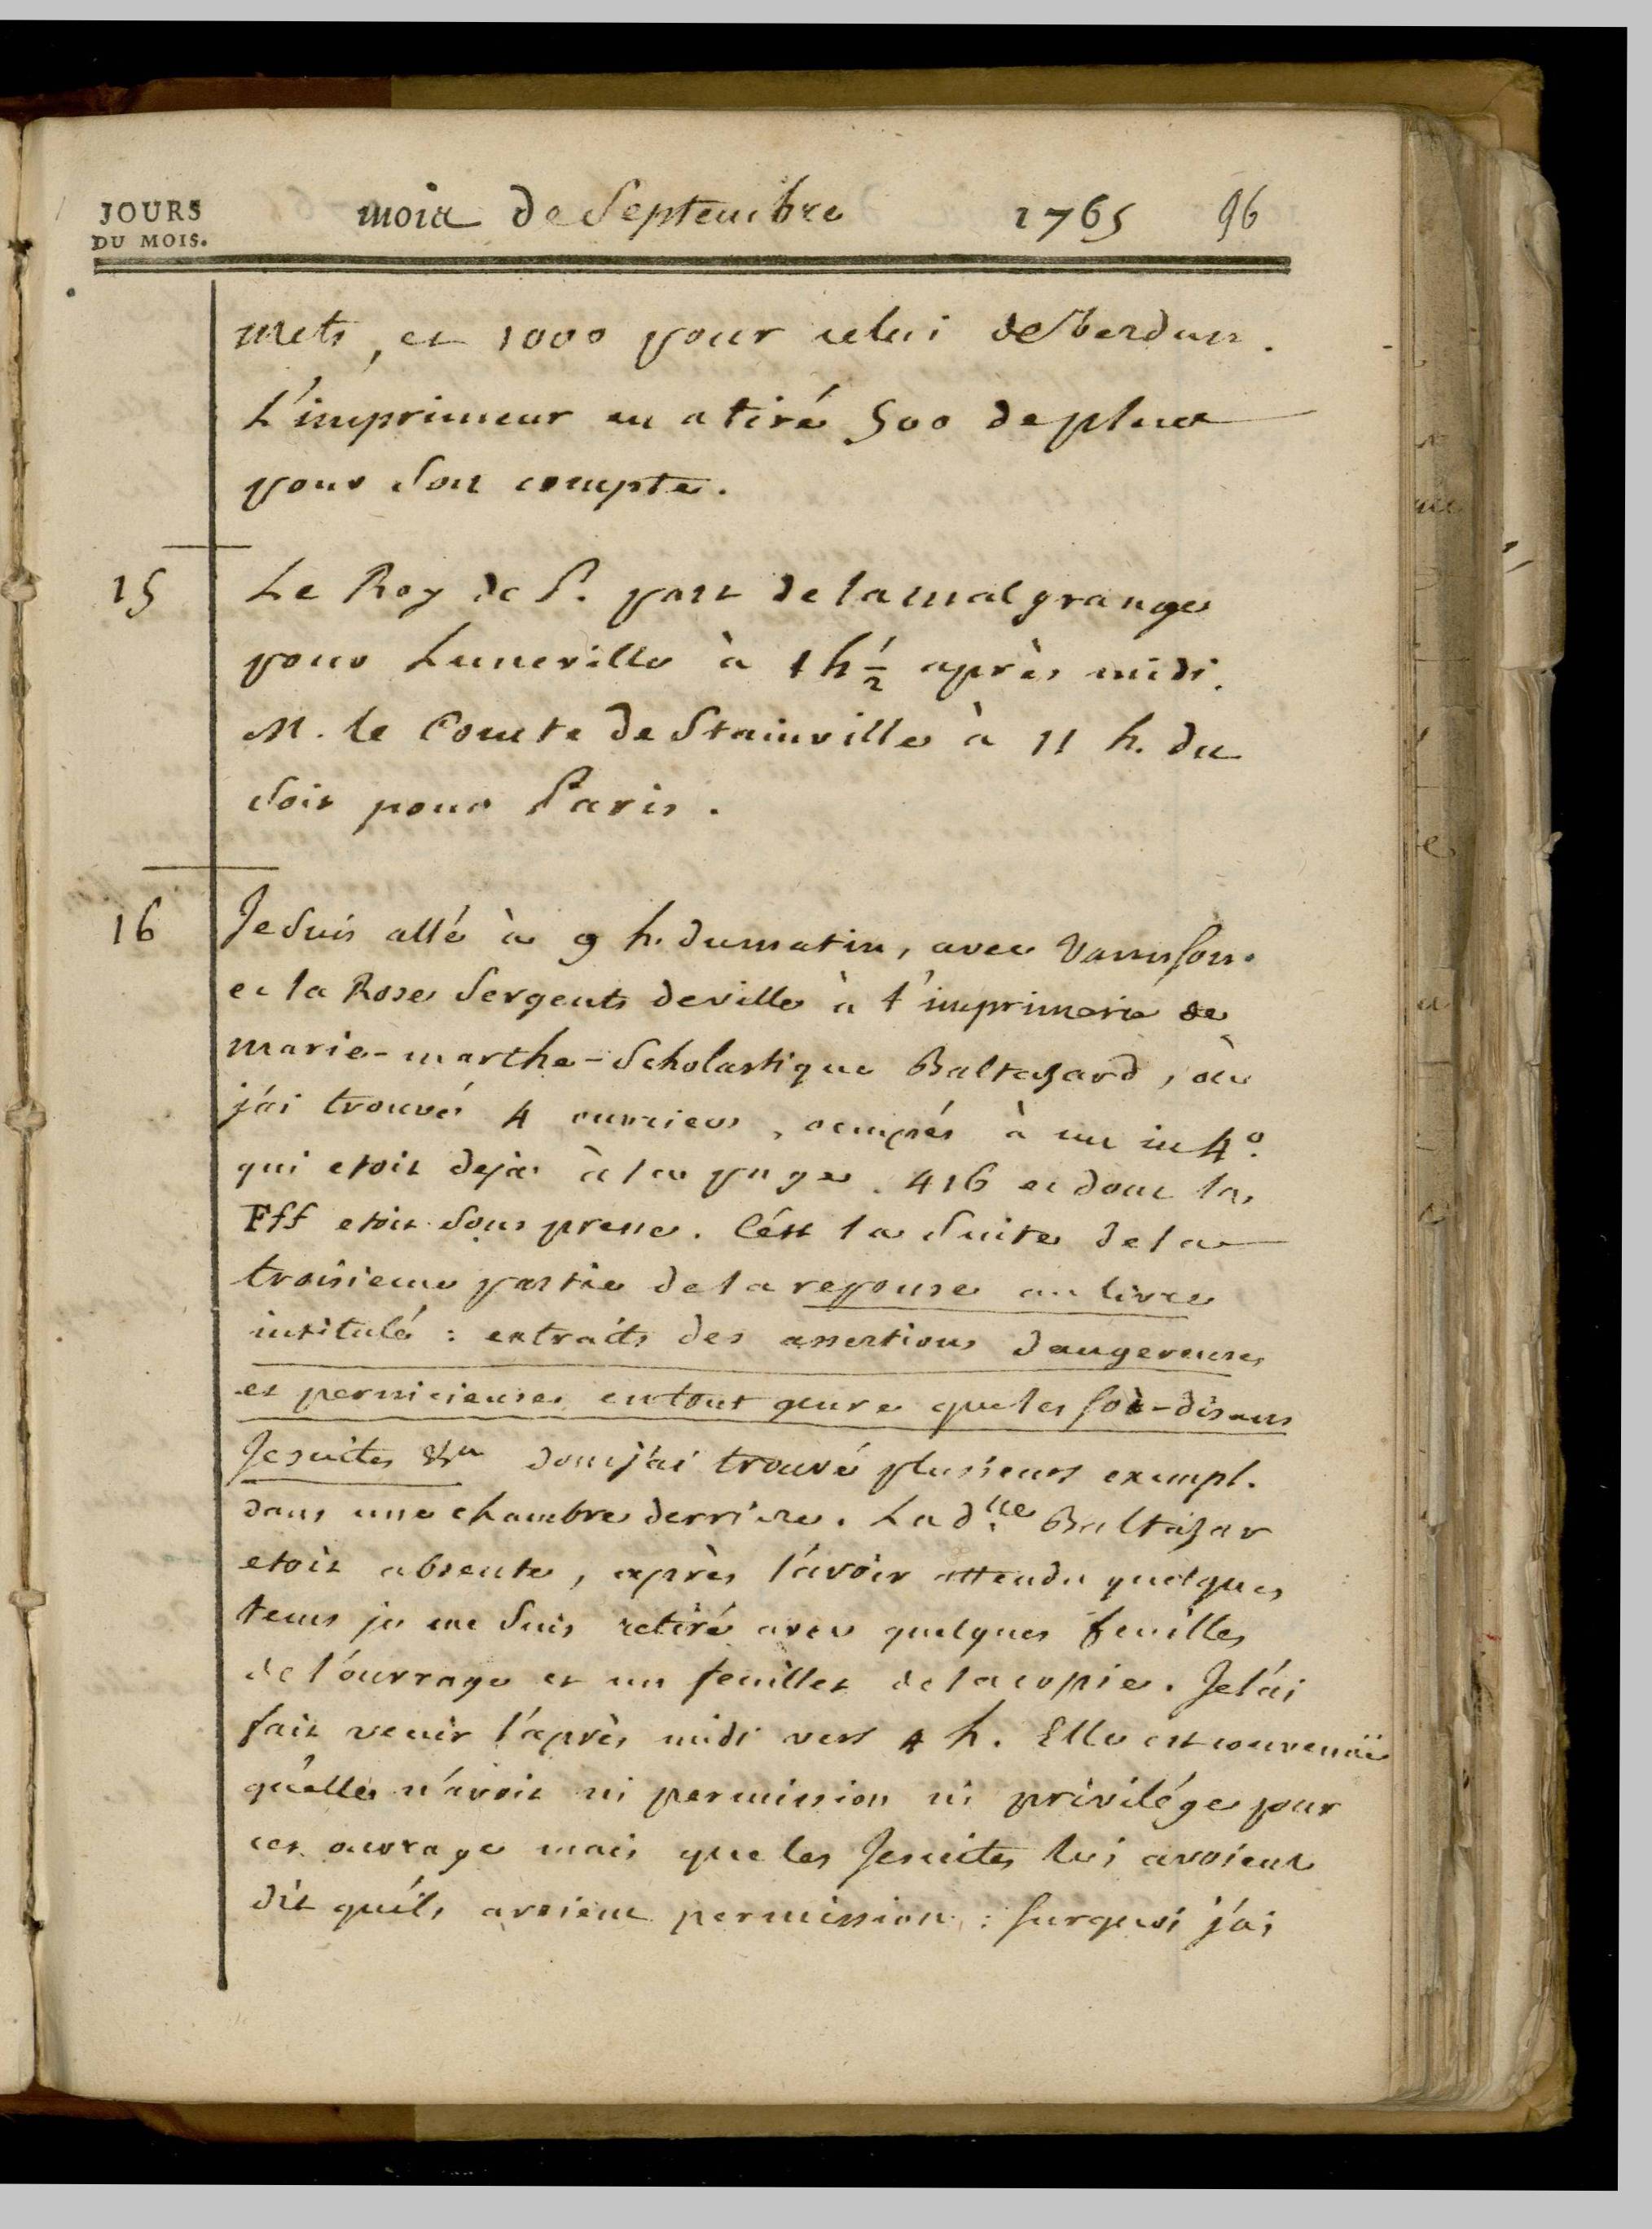 JOURS
DU MOIS.
mois de Septembre 1765 96
Mets, et 1000 pour celui de Verdun.
L'imprimeur en a tiré 500 de plus
pour son compte.
15 Le Roy de P. part de la malgrange
pour Luneville à 1 h ½ après midi.
M. le Comte de Stainville à 11 h. du
soir pour Paris.
16 Je suis allé à 9 h. du matin, avec Vannsson
et la Rose Sergents de ville à l'imprimerie de
marie-marthe-Scholastique Baltazard, où
j'ai trouvé 4 ouvriers, occupés à un in 4º.
qui etoit deja à la page. 416 et dont la
Fff etoit sous presse. C'est la suite de la
troisieme partie de la reponse au livre
intitulé : extraits des assertions dangereuses
et pernicieuses en tout genre que les soi-disans
Jesuites &a dont j'ai trouvé plusieurs exempl.
dans une chambre derriere. La dlle Baltazar
etoit absente, après l'avoir attendu quelques
tems je me suis retiré avec quelques feuilles
de l'ouvrage et un feuillet de la copie. Je l'ai
fait venir l'après midi vers 4 h. Elle est convenuë
qu'elle n'avoit ni permission ni privilége pour
cet ouvrage mais que les Jesuites lui avoient
dit qu'ils avoient permission : surquoi j'ai